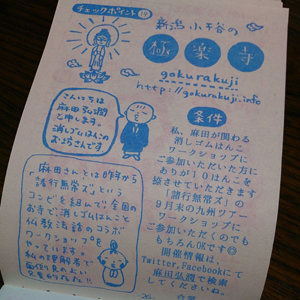 チェックポイント⑩
新潟小千谷の
極楽寺
gokurakuji
http://gokurakuji.info
こんにちは
麻田弘潤
と申します。
消しゴムはんこの
お坊さんです
条件
私、麻田が関わる
消しゴムはんこ
ワークショップに
ご参加いただいた方に
ありが10はんこを
捺させていただきます
「諸行無常ズ」の
9月末の九州ツアー
ワークショップに
ご参加いただくのでも
もちろんOKです◎
開催情報は、
Twitter, Facebookにて
麻田弘潤で検索
してくださいね。
麻田さんとは8時から
諸行無常ズという
コンビを組んで、全国の
お寺で消しゴムはんこと
仏教法話のコラボ
ワークショップを
やっています。
私の理解者で
面倒見のよい